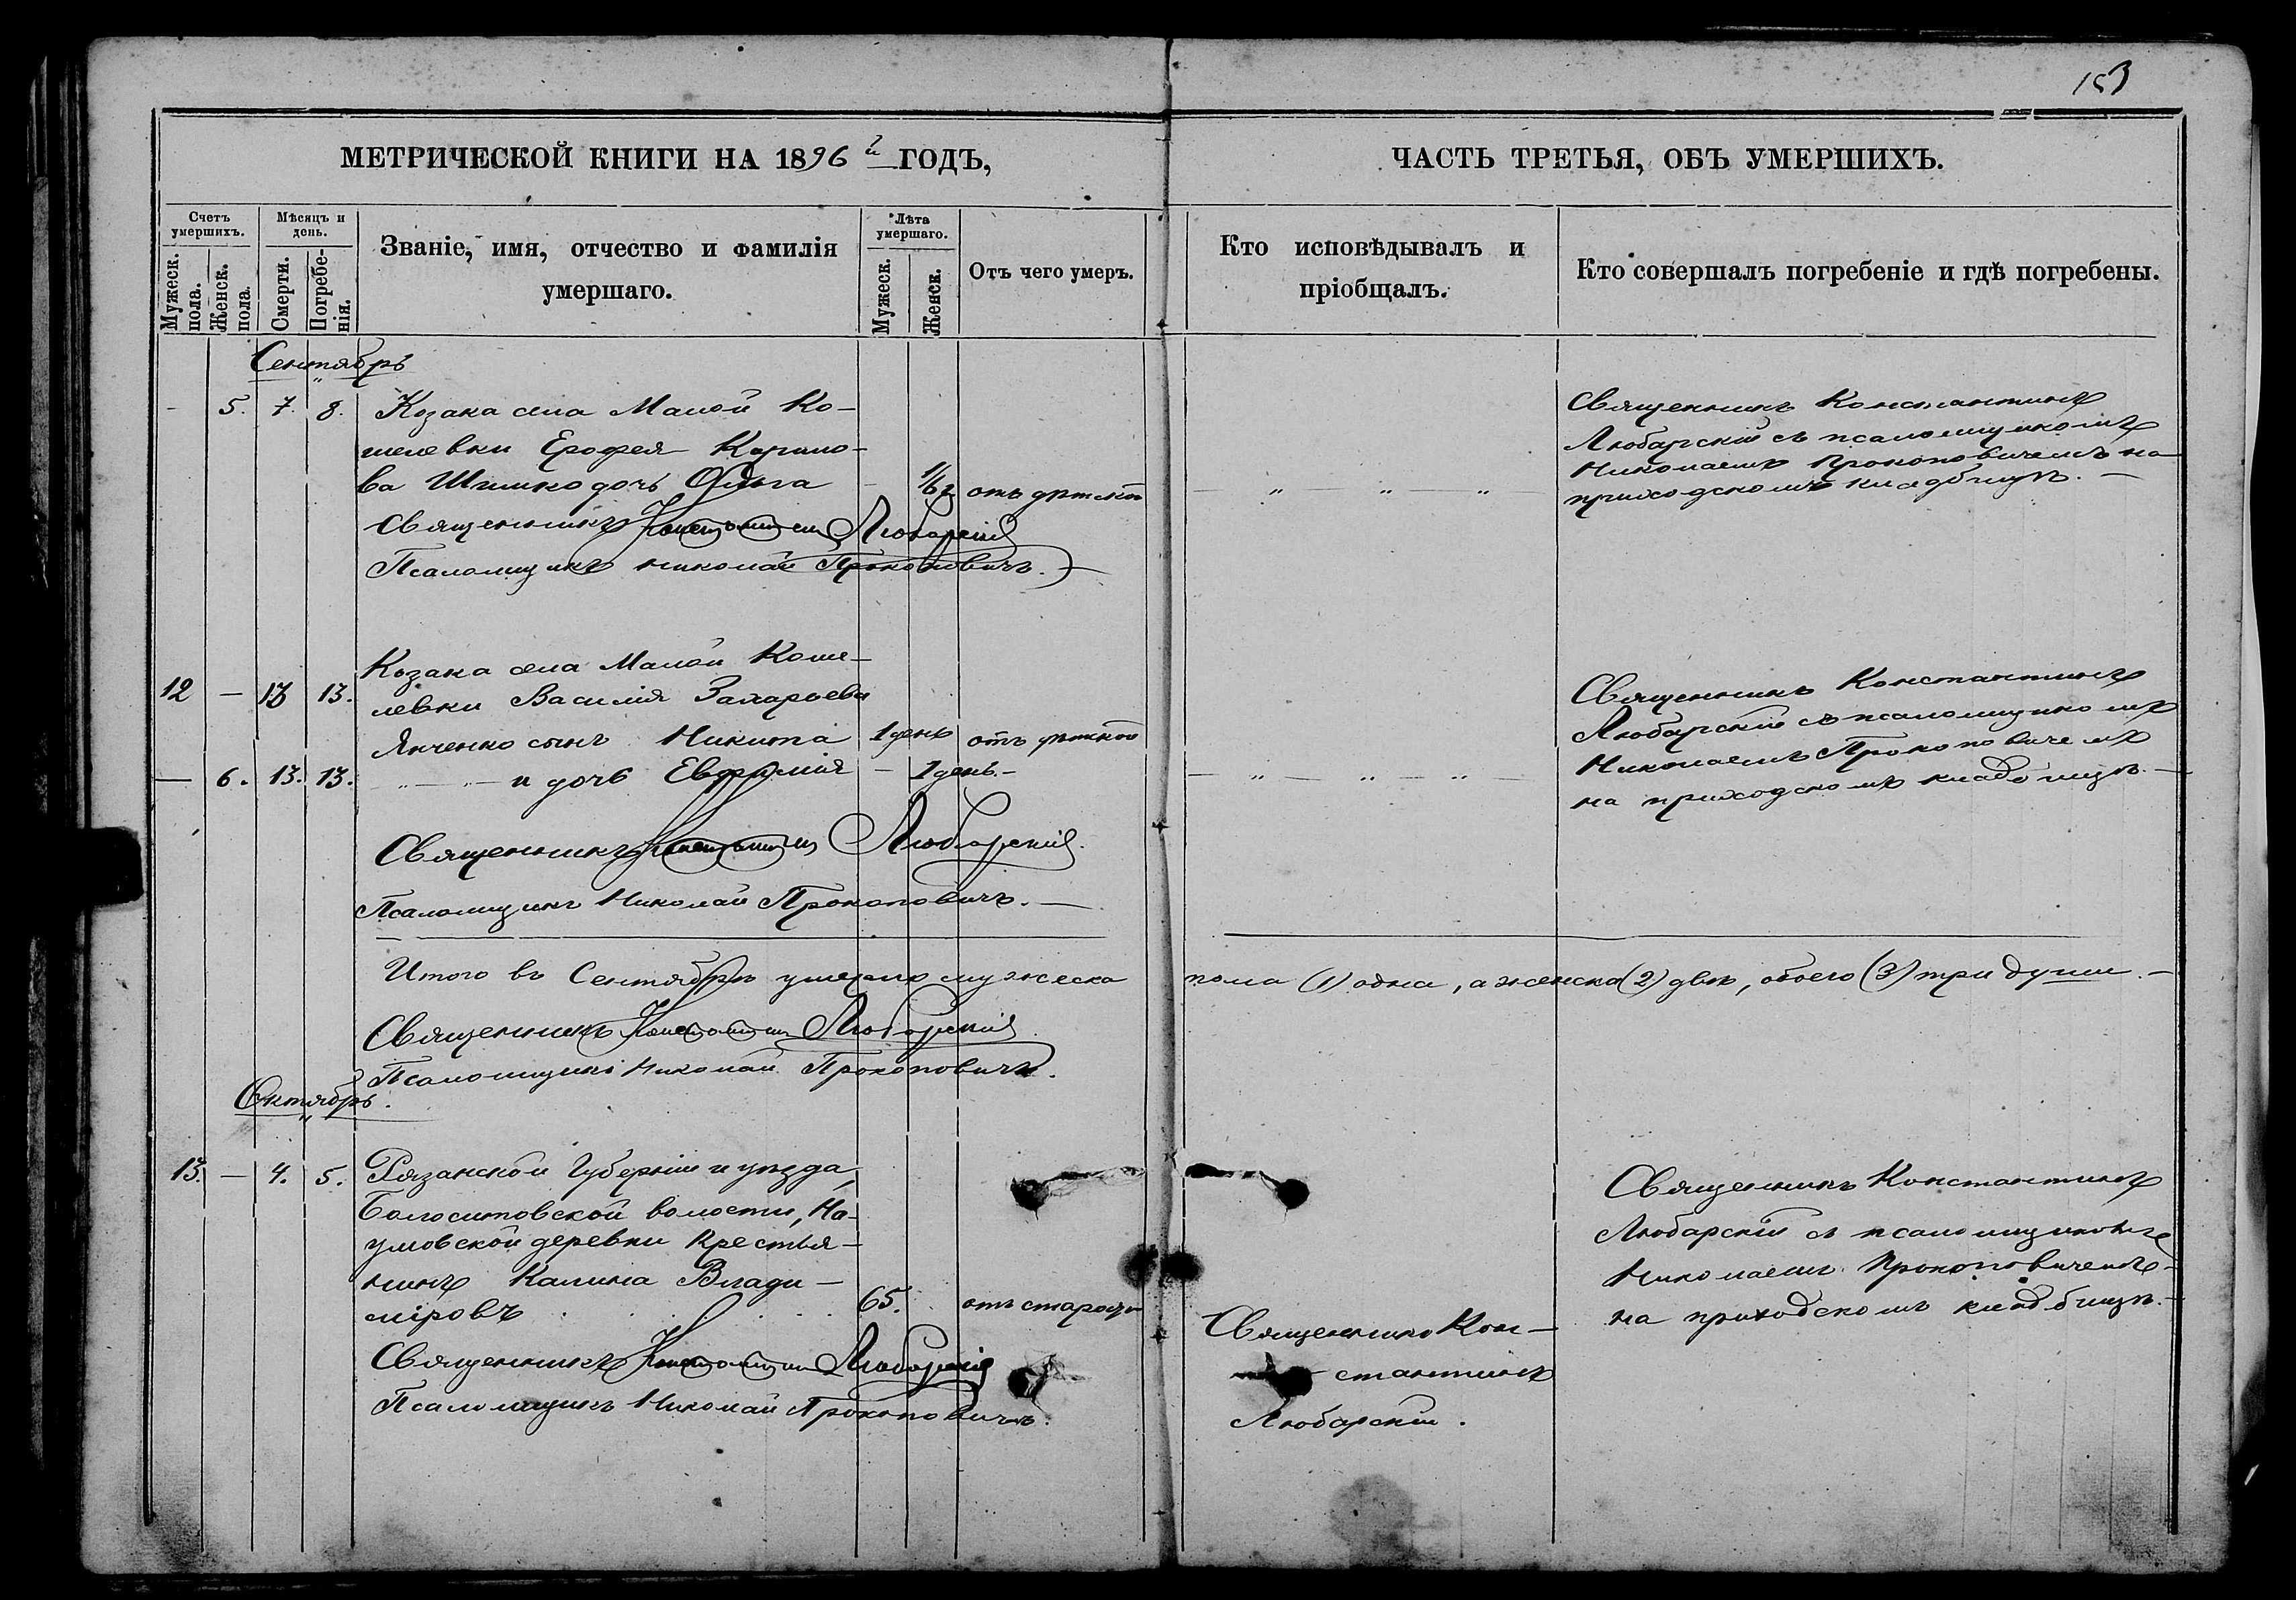 153
МЕТРИЧЕСКОЙ КНИГИ НА 1896 й ГОДЪ,
ЧАСТЬ ТРЕТЬЯ, ОБЪ УМЕРШИХЪ.
Счетъ умершихъ.
Мужеск. пола.
Женск. пола.
Мѣсяцъ и день.
Смерти.
Погребенія.
Званіе, имя, отчество и фамилія
умершаго.
Лѣта умершаго.
Мужеск.
Женск.
Отъ чего умеръ.
Кто исповѣдывалъ и
пріобщалъ.
Кто совершалъ погребеніе и гдѣ погребены.
Сентябрь
- 5. 7. 8. Козака села Малой Ко-
шелевки Ерофея
ва Шишко дочь Ольга - отъ дѣтской
Священникъ Константин Любарскій
Псаломщикъ Николай Прокоповичъ.
Священникъ Константинъ
Любарскій съ псаломщикомъ
Николаемъ Прокоповичемъ на
приходскомъ кладбищѣ.
Козака села Малой Коше-
12 - 13 13. левки Василія Захарьева
Янченко сынъ Никита 1 день отъ дѣтской
- 6. 13. 13. и дочь Евфимія - 1 день.
Священникъ Константин Любарскій.
Псаломщикъ Николай Прокоповичъ.
Священникъ Константинъ
Любарскій съ псаломщикомъ
Николаемъ Прокоповичемъ
на приходскомъ кладбищѣ.
Итого въ Сентябрѣ умерло мужеска пола (1) одна, а женска (2) двѣ, обоего (3) три души.
Священникъ Константин Любарскій
Псаломщикъ Николай Прокоповичъ.
Октябрь.
13. - 4. 5. Рязанской Губерніи и уѣзда,
волости, На-
умовской деревни Крестья-
нинъ Калина Влади-
міровъ 65. отъ старости
Священникъ Константин Любарскій
Псаломщикъ Николай Прокоповичъ.
Священникъ Кон-
стантинъ
Любарскій.
Священникъ Константинъ
Любарскій съ псаломщикомъ
Николаемъ Прокоповичемъ
на приходскомъ кладбищѣ.